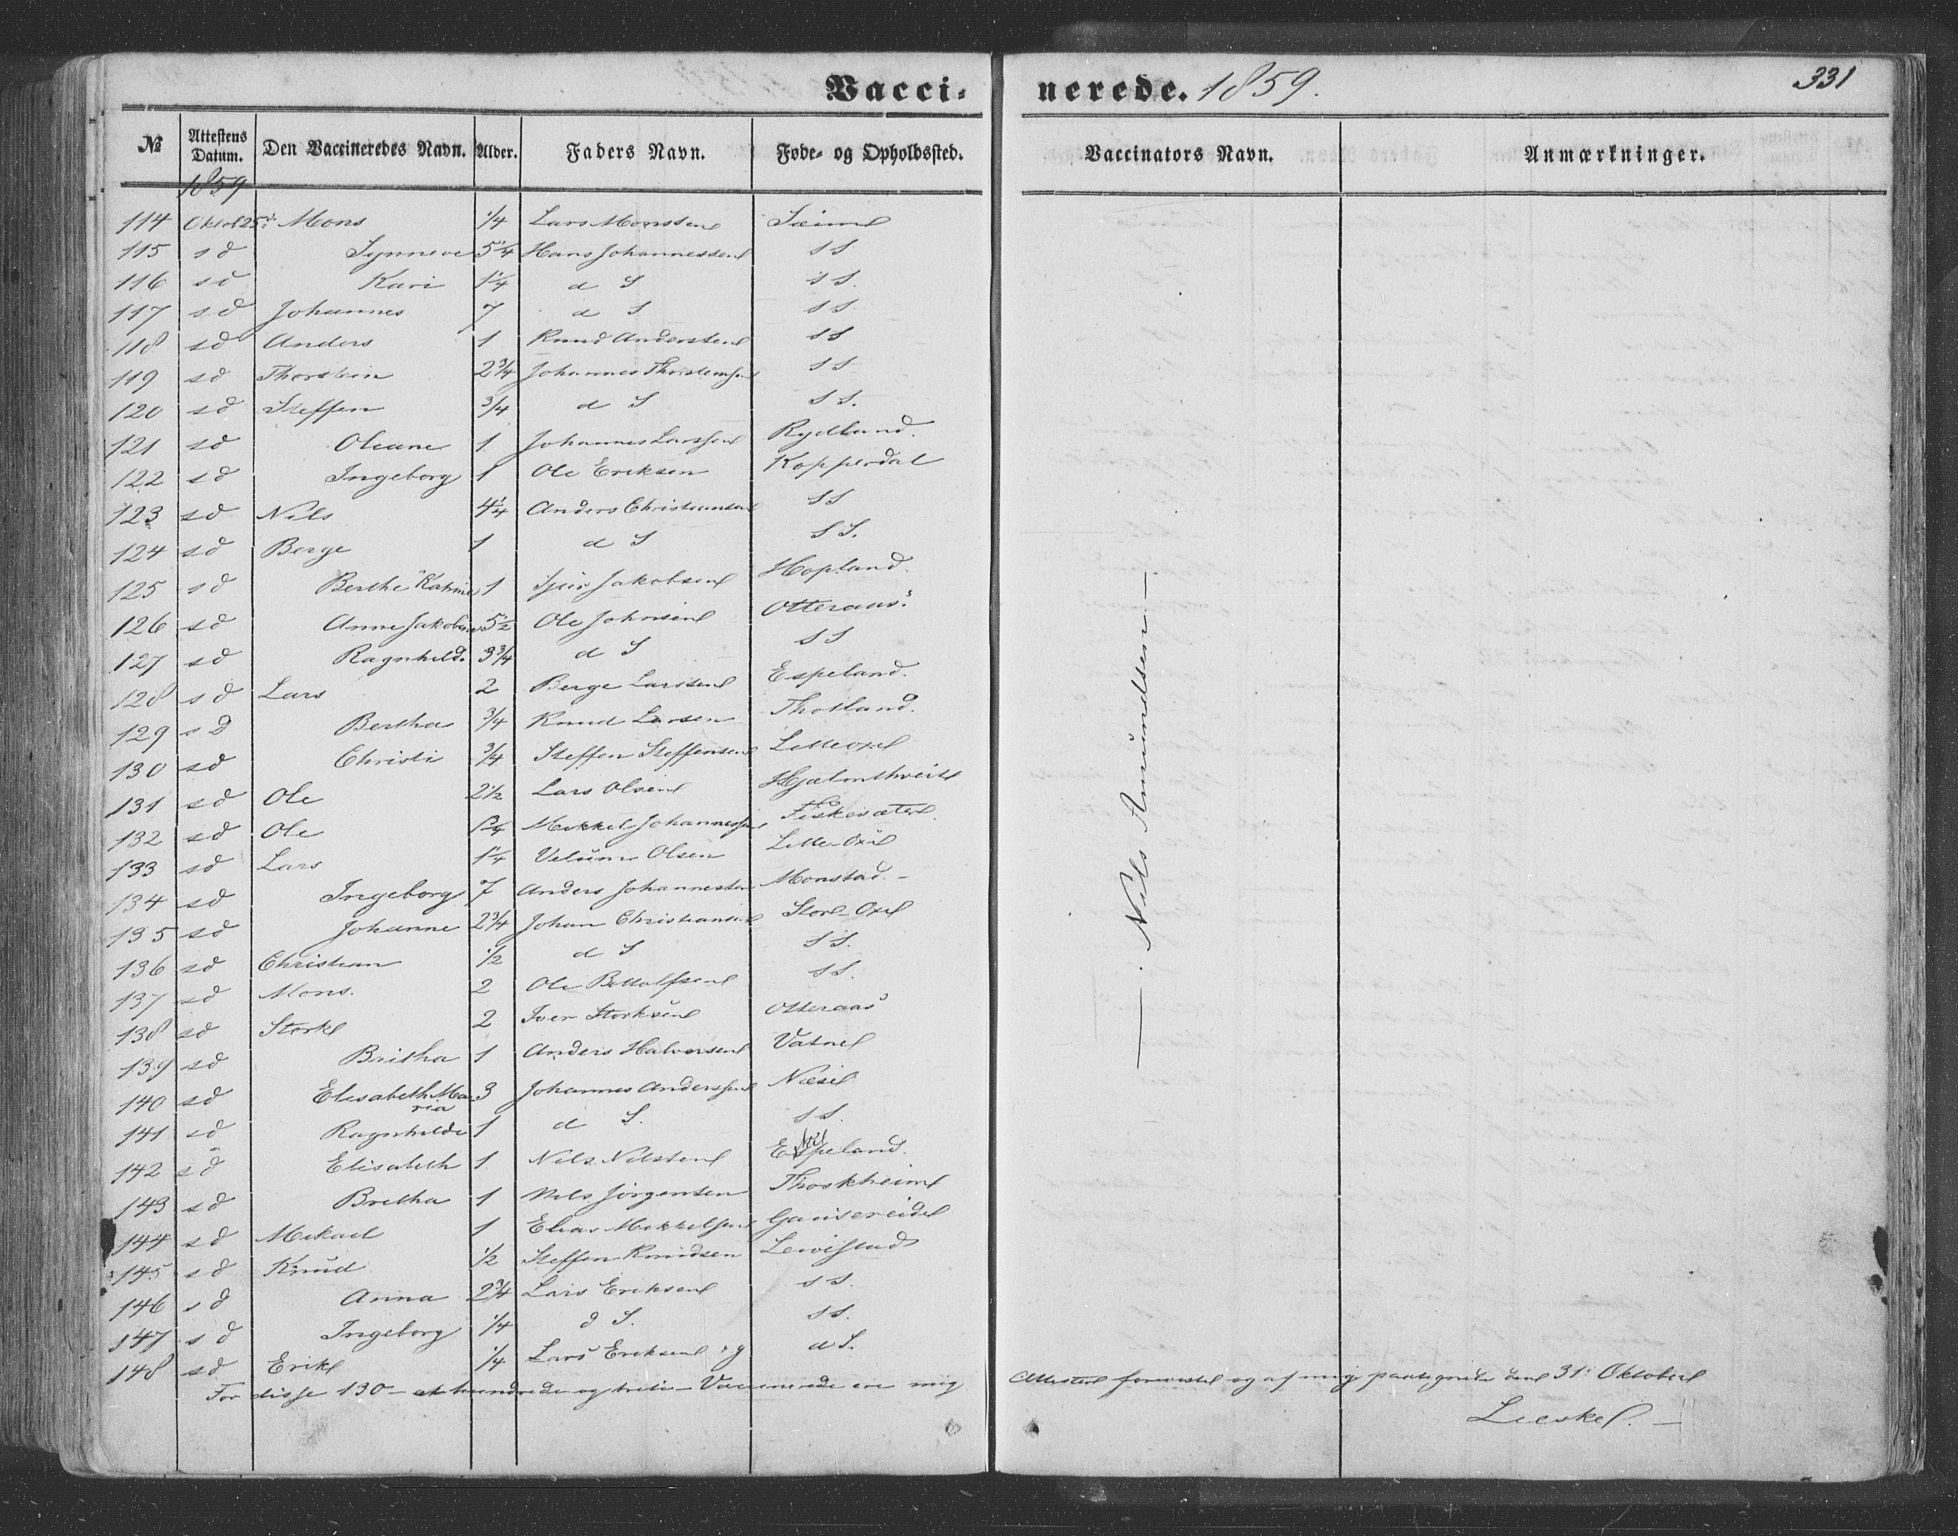 Vacci- nerede. 1859. 331
№ Attestens Datum. Den Vaccineredes Navn. Alder. Faders Navn. Føde- og Opholdssted. Vaccinators Navn. Anmærkninger.
1859
114 Oktob 25d: Mons 1/4 Lars Monssen Sæim
115 sd Synneve 5 1/4 Hans Johannessen ss
116 sd Kari 1 1/4 d S ss.
117 sd Johannes 7 d S ss
118 sd Anders 1 Knud Anderssen ss
119 sd Thorstein 2 3/4 Johannes Thorsteinsen ss
120 sd Steffen 3/4 d S ss.
121 sd Oleane 1 Johannes Larssen Rydland.
122 sd Ingeborg 1 Ole Eriksen Kopperdal
123 sd Nils 4 1/4 Anders Christiansen ss
124 sd Berge 1 d S ss.
125 sd Berthe Katrine 1 Jakobsen Hopland.
126 sd Anne Jakobine 5 1/2 Ole Johnsen Otteraas.
127 sd Ragnhild. 3 3/4 d S ss
128 sd Lars 2 Berge Larssen Espeland.
129 sd Bertha 3/4 Knud Larsen Thotland.
130 sd Christi 3/4 Steffen Steffensen Litleoxel
131 sd Ole 2 1/2 Lars Olsen Hjælmthveit
132 sd Ole Mikkel Johannessen Fiskesæter.
133 sd Lars 1 1/4 Olsen Litle-Oxel
134 sd Ingeborg 7 Anders Johannessen Monstad. -
135 sd Johanne 2 3/4 Johan Christiansen Store-Oxel
136 sd Christian 1/2 d S ss.
137 sd Mons. 2 Ole Bottolfsen ss.
138 sd Storke 2 Iver Storksen Otteraas
139 sd Britha 1 Anders Halvorsen Vatne
140 sd Elisabeth Maria 3 Johannes Anderssen Næse
141 sd Ragnhilde 1 d S. ss.
142 sd Elisabeth 1 Nils Nilssen Espeland.
143 sd Bretha 1 Nils Jørgensen Thoskheim
144 sd Mikael 1 Elias Mikkelsen Gausereidet
145 sd Knud 1/2 Steffen Knudsen Leivestad
146 sd Anna 2 3/4 Lars Eriksen ss.
147 sd Ingeborg 1/4 d S. ss.
148 sd Erik 1/4 Lars Eriksen dS.
— . Nils Amundsen —
For disse 130 - et hundrede og treti - Vaccinerede ere mig Attester foreviste og af mig paategnede den 31: Oktober